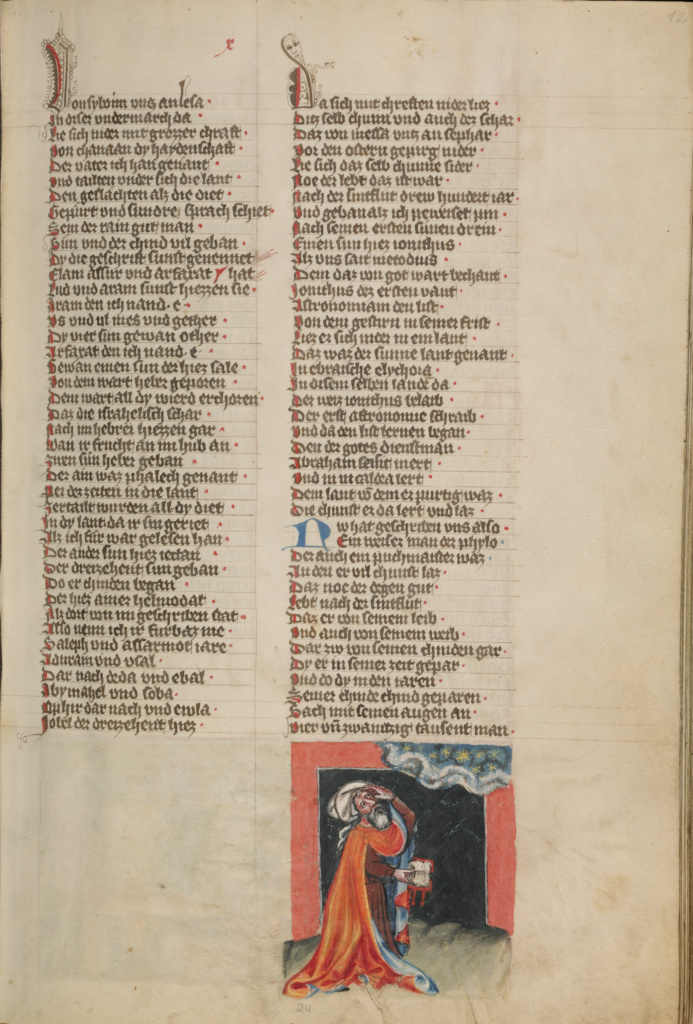 x
12
Von sydoim untz an lesa
In diser undermarch da
Lie sich nider mit grozzer chraft
Von chanaan dy haydenschaft
Der vater ich han genant
Und tailten under sich die lant
Den geslachten als die diet
Gepurt und sundre sprach schiet
Sem der rain gut man
Sun und der chind vil geban
Dy die geschrift sunst gennenet
Elam assur und arfaxat hat
Lud und aram sunst hiezzen sie
Aram den ich nand e
Us und ul mes und gether
Dy vier sun gewan other
Arfaxat den ich nand e
Gewan einen sun der hiez sale
Von dem wart heber geporen
Dem wart all dy wierd erchoren
Daz die israhelisch schar
Nach im hebrei hiezzen gar
Wan ir frucht an im hub an
Zwen sun heber geban
Der ain waz phalech genant
Pei der zeiten in die lant
Zertailt wurden all dy diet
In dy lant da ir sin geriet
Als ich fur war gelesen han
Der ander sun hiez iectan
Der dreizehent sun geban
Do er chinden began
Der hiez ainer helmodat
Als dort von im geschriben stat
Also nenn ich ir furbaz me
Saleph und assarmot iare
Aduram und usal
Dar nach deda und ebal
Abymahel und soba
Ophir dar nach und eiula
Jobel der dreizehent hiez
Da sich mit chresten nider liez
Ditz selb chunn und auch der schar
Daz von messa untz an sephar
Vor den ostern gepirg nider
Lie sich daz selb chunne sider
Noe der lebt daz ist war
Nach der sintflut drew hundert iar
Und geban als ich peweiset pin
Nach seinen ersten sunen drein
Einen sun hiez ionichus
Als uns sait metodius
Dem daz von got wart bechant
Jonichus der ersten vant
Astronomiam den list
Von dem gestirn in seiner frist
Liez er sich nider in ein lant
Daz waz der sunne lant genant
In ebraische elychora
In disem selben lande da
Der weis ionichus belaib
Der erst astronomie schraib
Und da den list lernen began
Den der gotes dienstman
Abraham seint mert
Und in in caldea lert
Dem lant von dem er purtig waz
Die chunst er da lert und laz
Nw hat geschriben uns also
Ein weiser man der phylo
Der auch ein puchmaister waz
An den er vil chunst laz
Daz noe der degen gut
Lebt nach der sintflut
Daz er von seinem leib
Und auch von seinem weib
Dar zw von seinen chinden gar
Dy er in seiner zeit gepar
Und do dy in den iaren
Seiner chinde chind geparen
Sach mit seinen augen an
Vier und zwaintzig tausent man